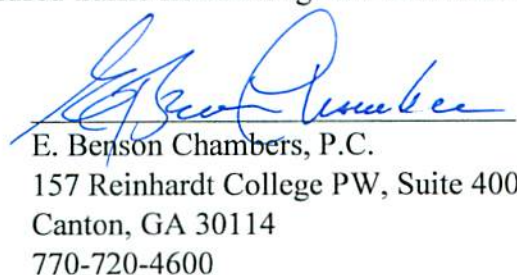 E. Benson Chambers
E. Benson Chambers, P.C.
157 Reinhardt College PW, Suite 400
Canton, GA 30114
770-720-4600